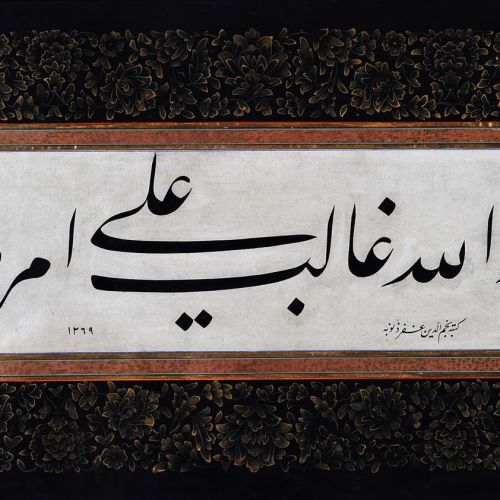 الله غالب على امر
كتبه نجم الدين غفر ذنوبه
١٣٦٩